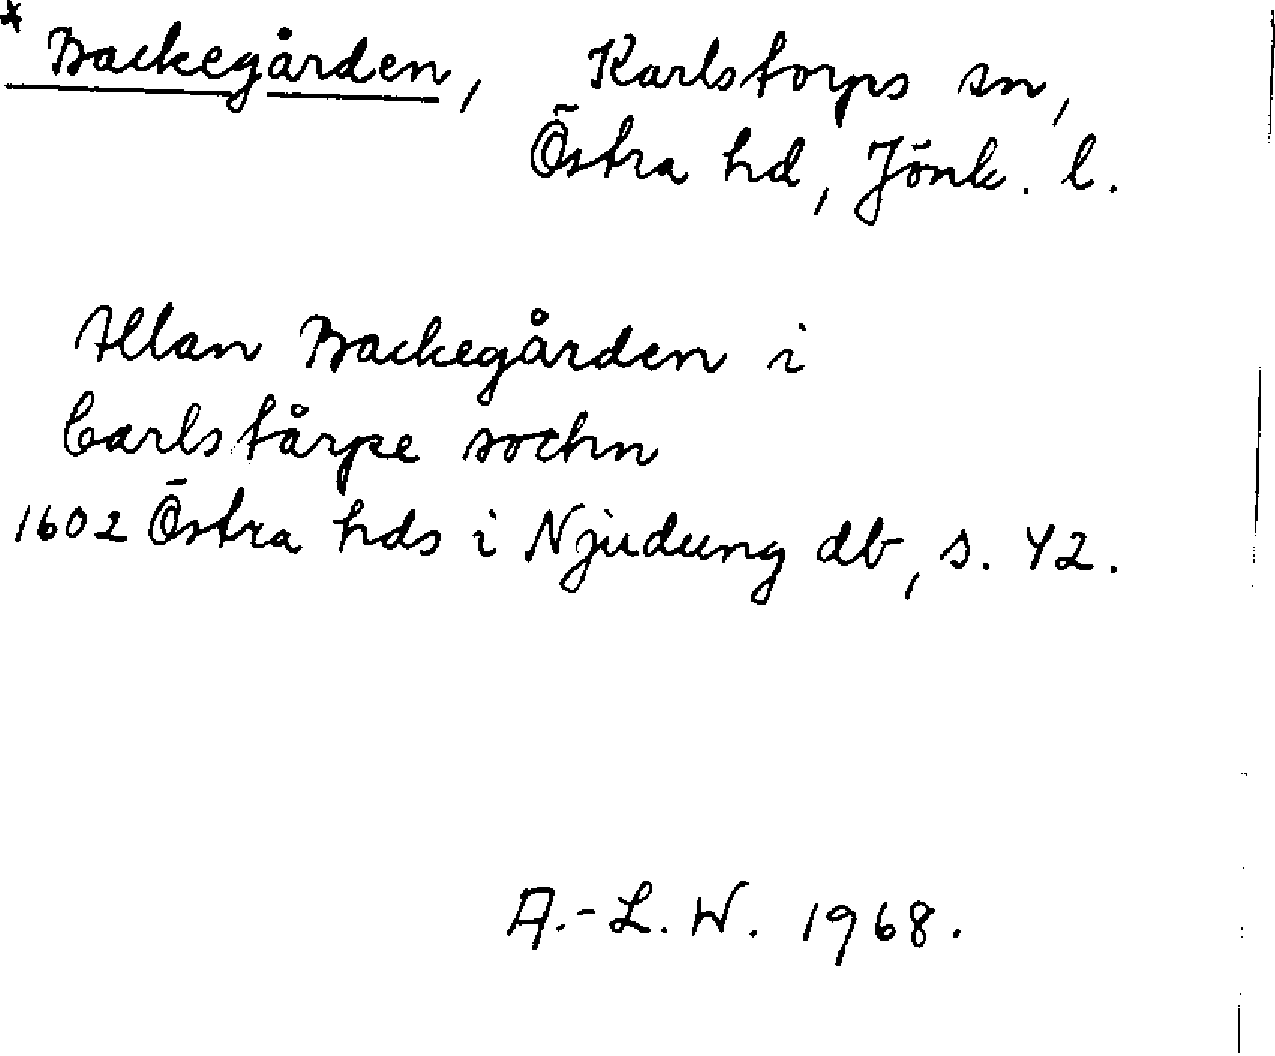 * Backegården, Karlstorps sn,
Östra hd, Jönk. l.
Allan Backegården i
Carlstårpe sochn
1602 Östra hds i Njudung db, s. 42.
A.-L. W. 1968.